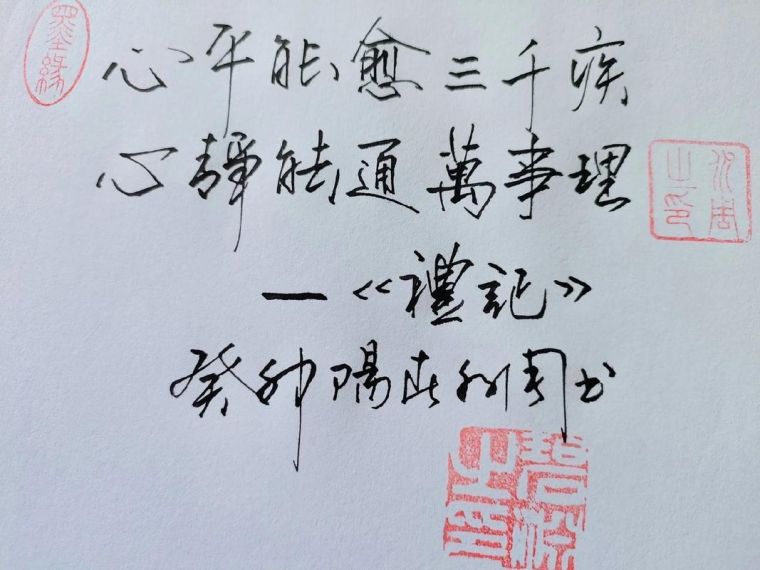 墨缘
心平能愈三千疾
心靜能通萬事理
—《禮記》
癸卯陽春 書
之印